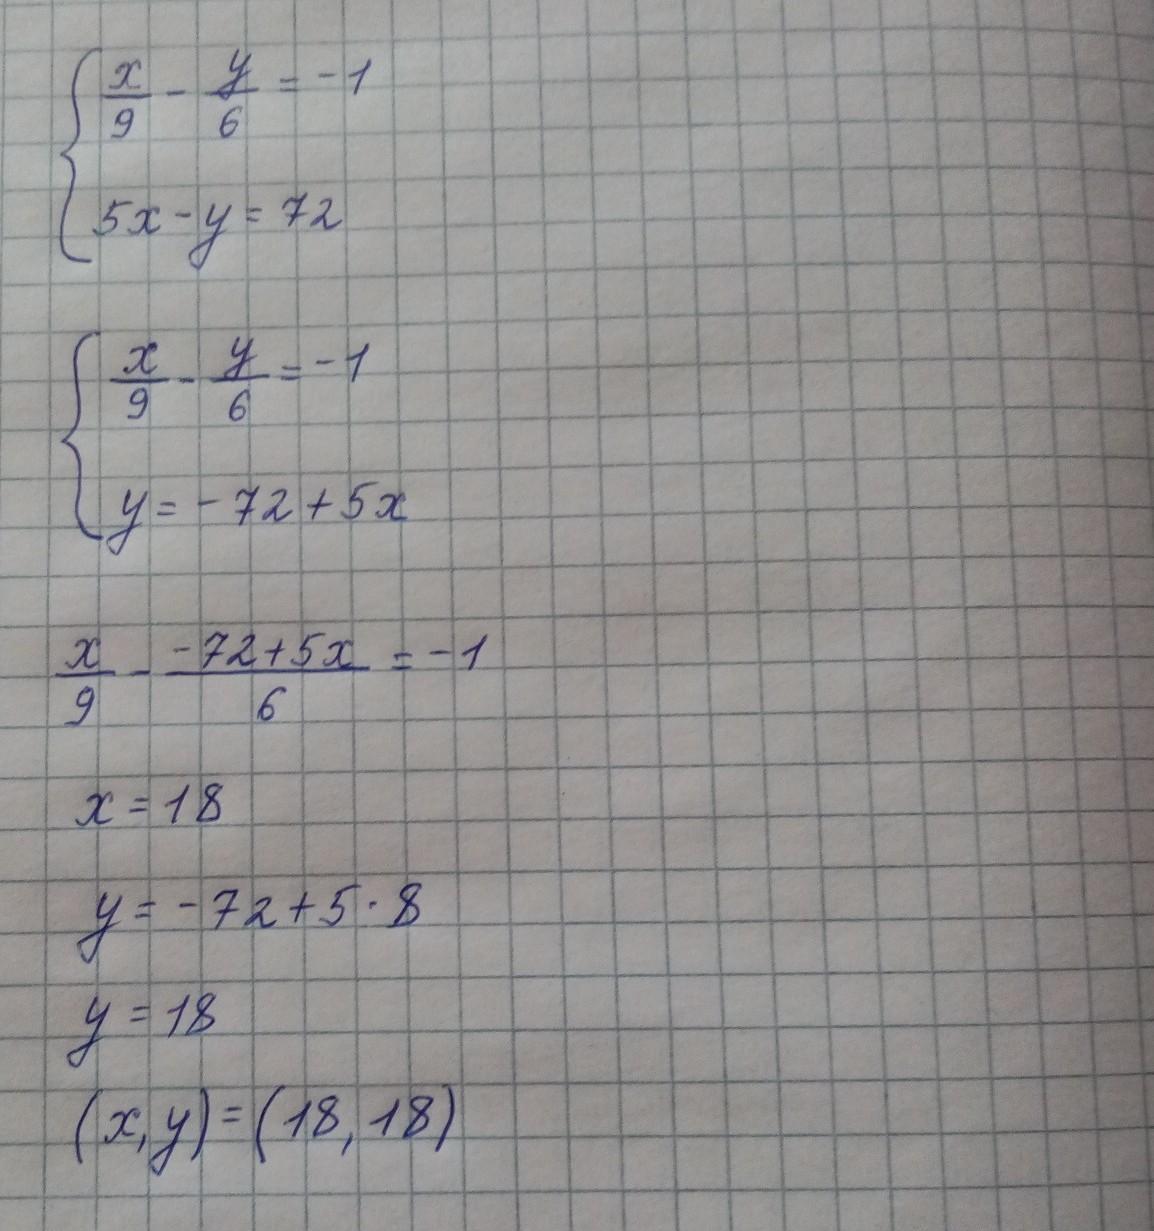 x/9 - y/6 = -1
5x - y = 72
x/9 - y/6 = -1
y = -72 + 5x
x/9 - (-72+5x)/6 = -1
x = 18
y = -72 + 5 · 8
y = 18
(x, y) = (18, 18)